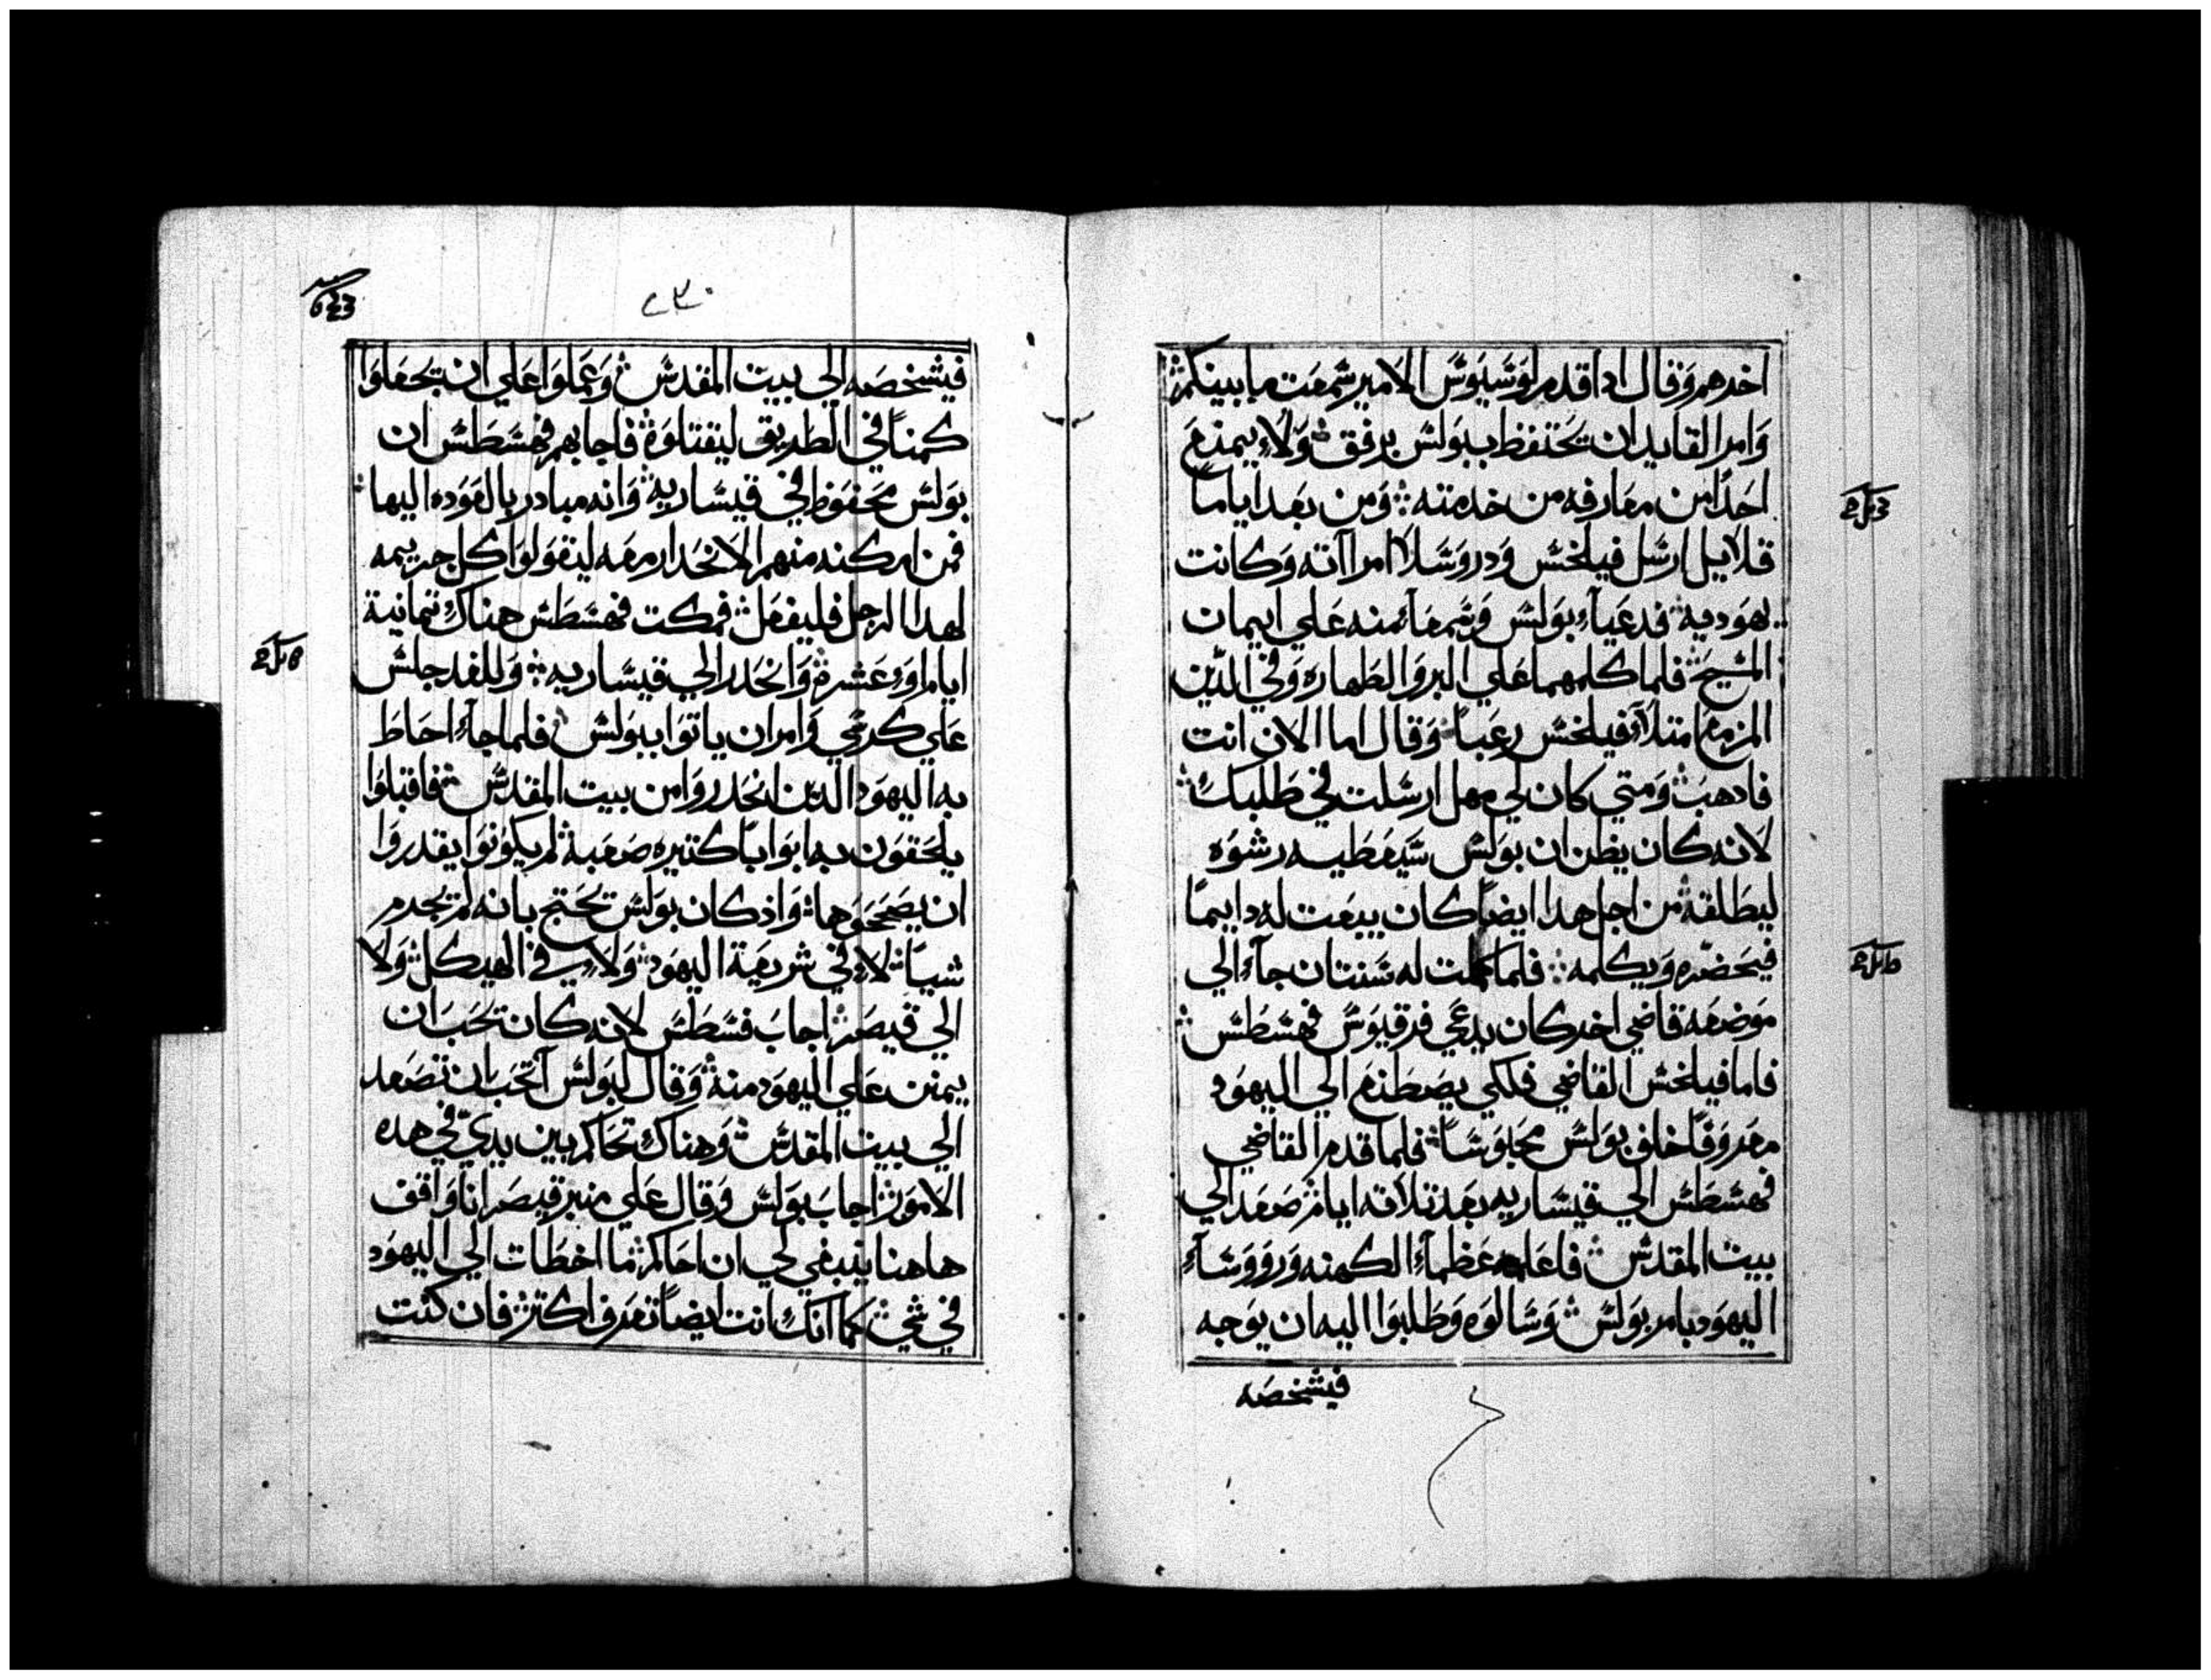 اخرهم وقال ادا قدم لوسيوس الامير سمعت ما بينكم
وامر القايد ان يحتفظ ببولس برفق ولا يمنع
احدا من معارفه من خدمته ومن بعد اياما
قلايل ارسل فيلخس ودروسلا امراته وكانت
يهوديه فدعيا بولس وسمعا منه علي ايمان
المسيح فلما كلمهما علي البر والطهاره وفي الدين
المزمع امتلا فيلخس رعبا وقال اما الان انت
فادهب ومتي كان لي مهل ارسلت في طلبك
لانه كان يظن ان بولس سيعطيه رشوه
ليطلقه من اجل هدا ايضا كان يبعت له دايما
فيحضره ويكلمه فلما كملت له سنتان جاء الي
موضعه قاضي اخر كان يدعي فرقيوس فهسطس
فاما فيلخس القاضي فلكي يصطنع الي اليهود
معروفا خلف بولس محبوسا فلما قدم القاضي
فهسطس الي قيساريه بعد تلاته ايام صعد الي
بيت المقدس فاعلموه عظماء الكهنه ورووساء
اليهود بامر بولس وسالوه وطلبوا اليه ان يوجه
فيشخصه
٢٣٠
فيشخصه الي بيت المقدس وعملوا علي ان يجعلوا
كمنا في الطريق ليقتلوه فاجابهم فهسطس ان
بولس محفوظ في قيساريه وانه مبادر بالعوده اليها
فمن امكنه منهم الانحدار معه ليقولوا كل جريمه
لهدا الرجل فليفعل فمكت فهسطس هناك تمانية
ايام او عشره وانحدر الي قيساريه وللغد جلس
علي كرسي وامر ان ياتوا ببولس فلما جاء احاط
به اليهود الدين انحدروا من بيت المقدس فاقبلوا
يلحقون به ابوابا كتيره صعبة لم يكونوا يقدروا
ان يصححوها واذ كان بولس يحتج بانه لم يجرم
شيا لا في شريعة اليهود ولا في الهيكل ولا
الي قيصر اجاب فسطس لانه كان يحب ان
يمنن علي اليهود منه وقال لبولس اتحب ان تصعد
الي بيت المقدس وهناك تحاكم بين يدي في هده
الامور اجاب بولس وقال علي منبر قيصر انا واقف
هاهنا ينبغي لي ان احاكم ما اخطات الي اليهود
في شي كما انك انت ايضا تعرف اكتر فان كنت